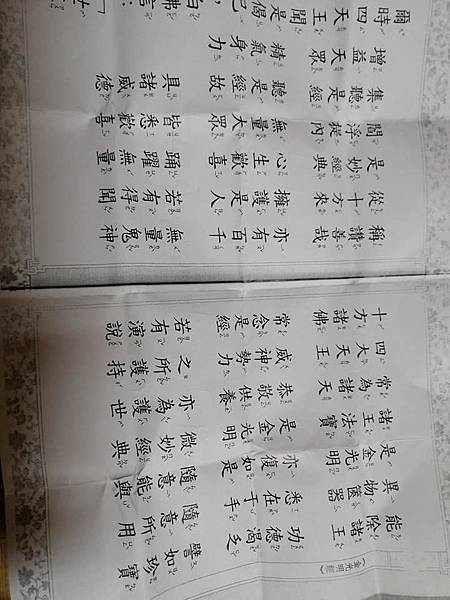 《金光明經》
能除諸王　功德渴乏　譬如珍寶
異物篋器　悉在于手　隨意所用
是金光明　亦復如是　隨意能與
諸王法寶　是金光明　微妙經典
常為諸天　恭敬供養　亦為護世
四天大王　威神勢力　之所護持
十方諸佛　常念是經　若有演說
稱讚善哉　亦有百千　無量鬼神
從十方來　擁護是人　若有得聞
是妙經典　心生歡喜　踊躍無量
閻浮提內　無量大眾　皆悉歡喜
集聽是經　聽是經故　具諸威德
增益天眾　精氣身力
爾時四天王聞是偈已白佛言：「